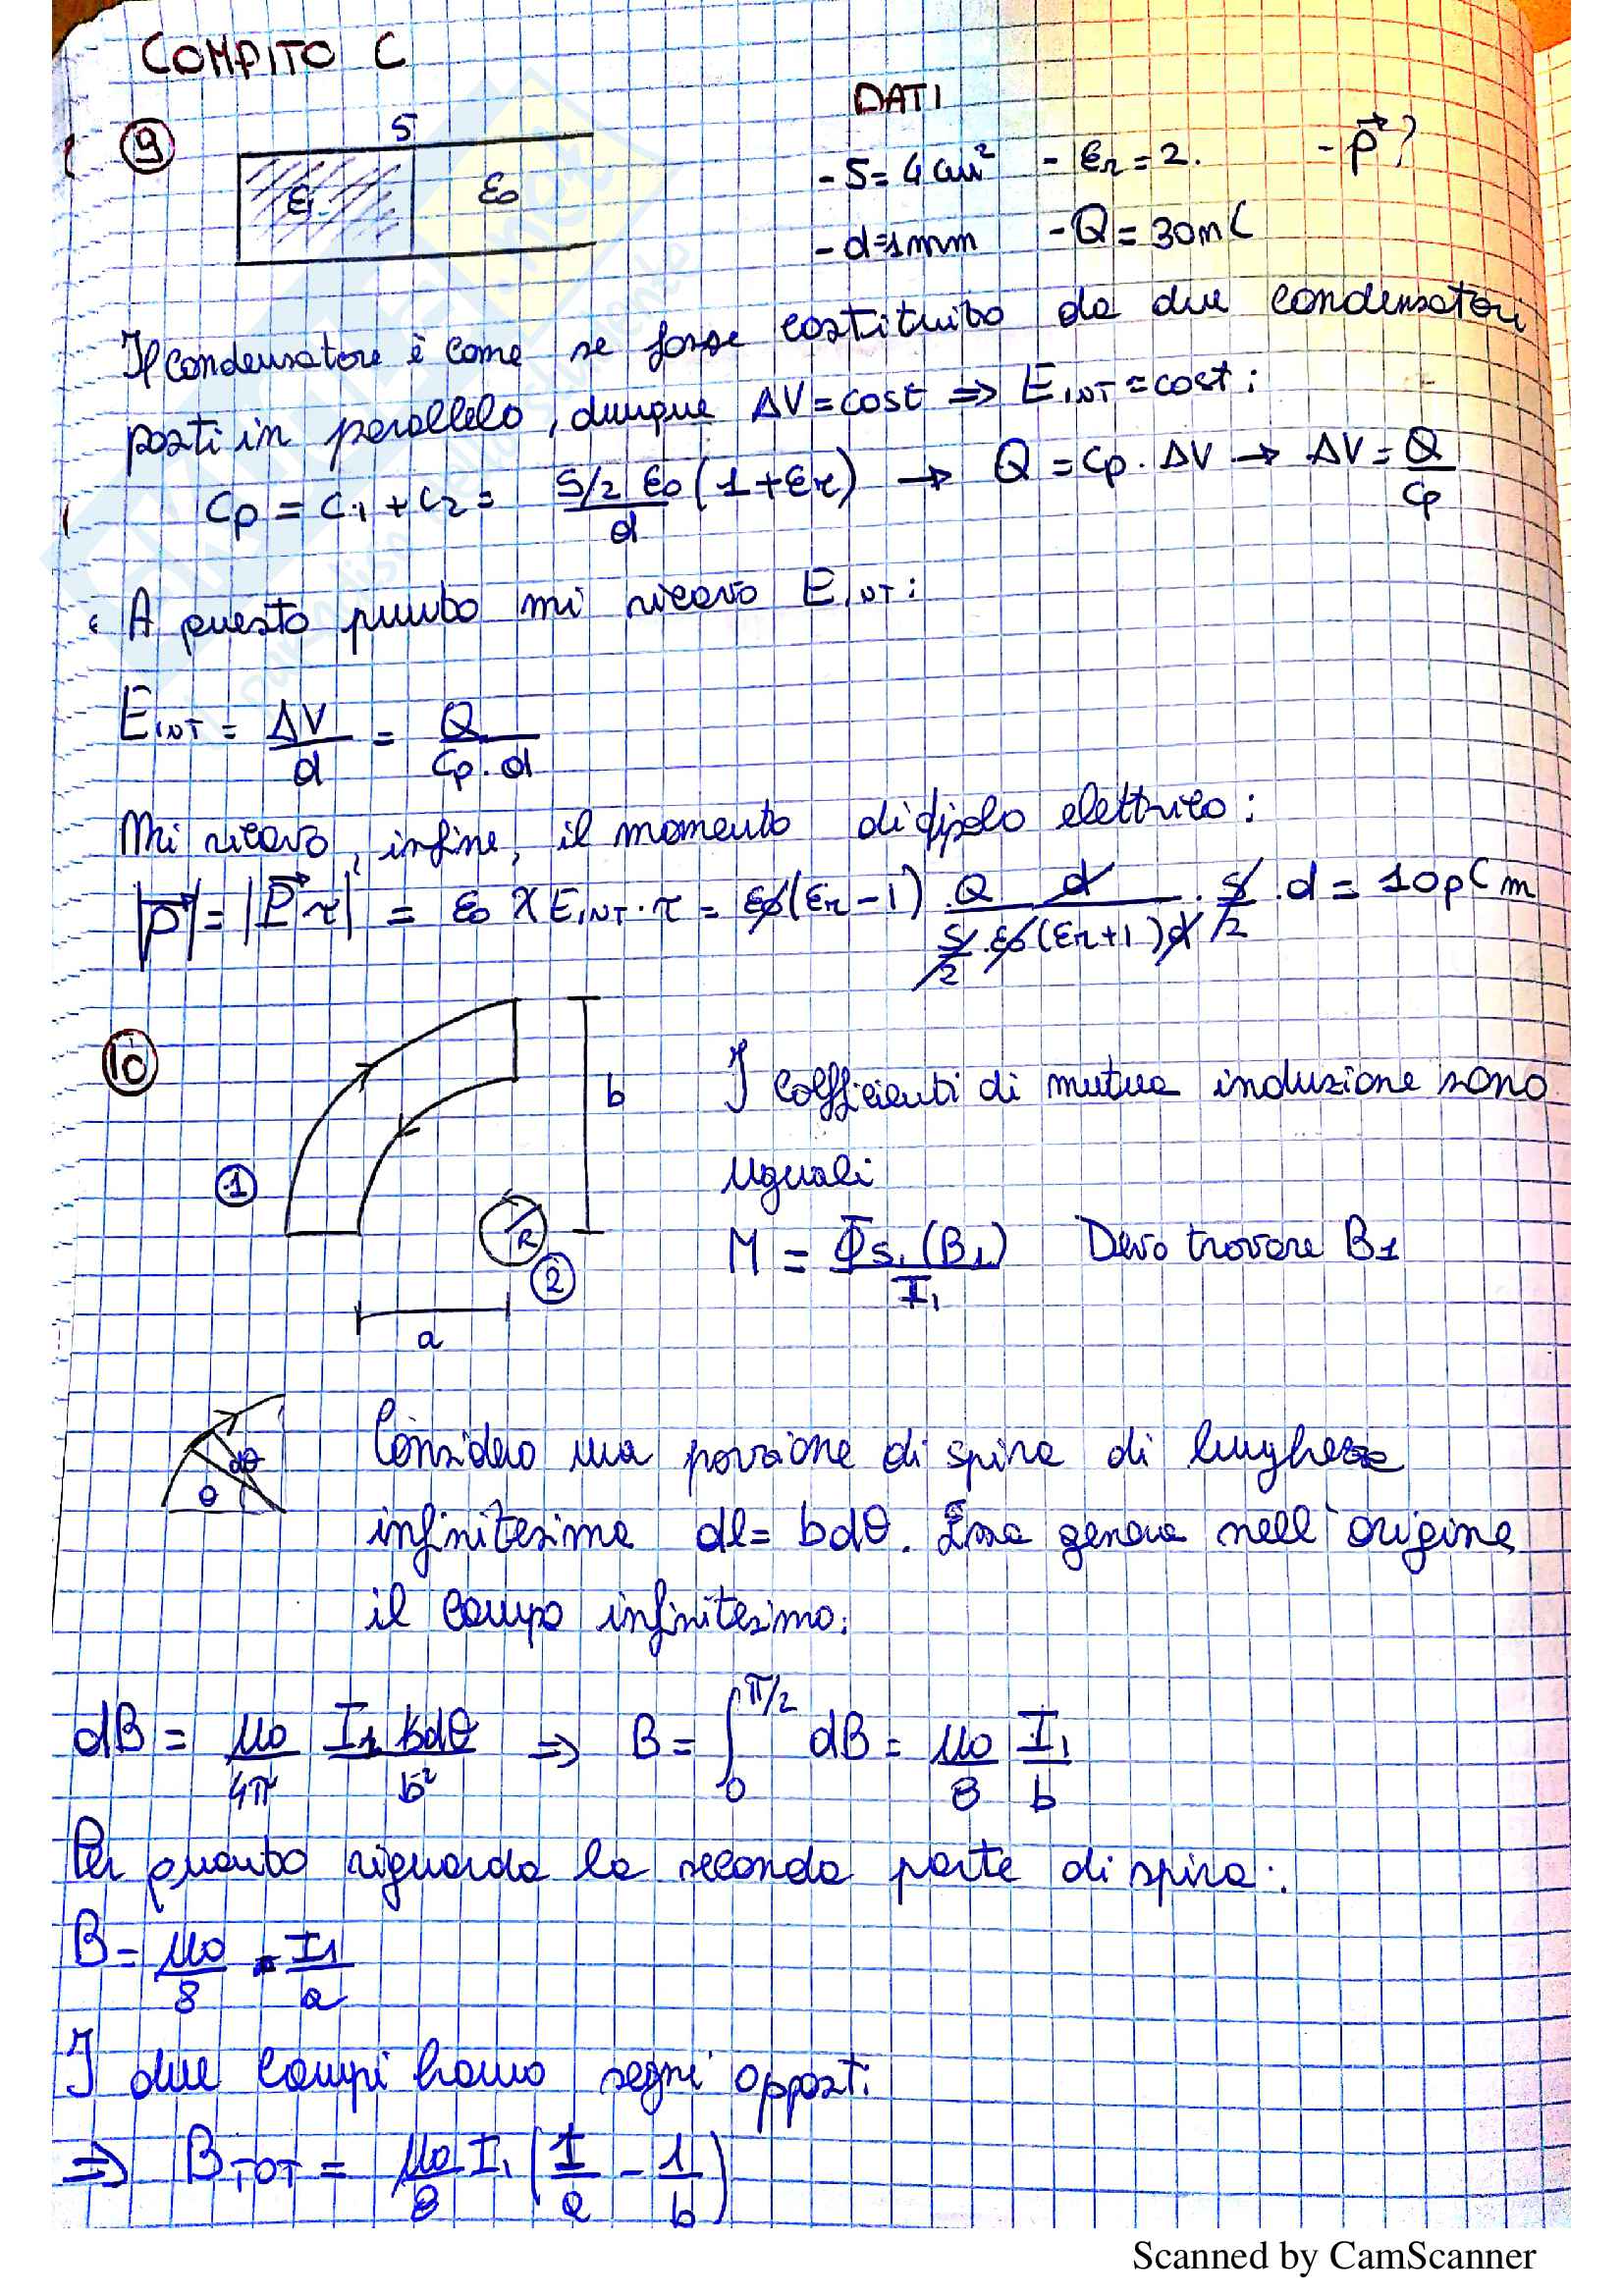 COMPITO C
DATI
9
S
ε₁ ε₀
- S = 4 cm² - εr = 2. - p⃗?
- d = 1mm - Q = 30nC
Il condensatore è come se fosse costituito da due condensatori
posti in parallelo, dunque ΔV = cost ⇒ E INT = cost:
Cp = C₁ + C₂ = S/2 ε₀ (1 + εr) / d → Q = Cp · ΔV → ΔV = Q / Cp
A questo punto mi ricavo E INT:
E INT = ΔV / d = Q / Cp · d
Mi ricavo, infine, il momento di dipolo elettrico:
|p⃗| = |P⃗ τ| = ε₀ χ E INT · τ = ε₀ (εr - 1) Q d / S/2 · ε₀ (εr + 1) d · S/2 · d = 10 pC m
10
b
I coefficienti di mutua induzione sono
1
uguali
R
M = Φs₁ (B₁) / I₁ Devo trovare B1
2
a
Considero una porzione di spira di lunghezza
dθ
θ
infinitesima dl = b dθ. Essa genera nell'origine
il campo infinitesimo:
dB = μ₀ / 4π I₁ b dθ / b² ⇒ B = ∫₀^π/2 dB = μ₀ / 8 I₁ / b
Per quanto riguarda la seconda parte di spira:
B = μ₀ / 8 · I1 / a
I due campi hanno segni opposti
⇒ B TOT = μ₀ / 8 I₁ (1 / a - 1 / b)
Scanned by CamScanner